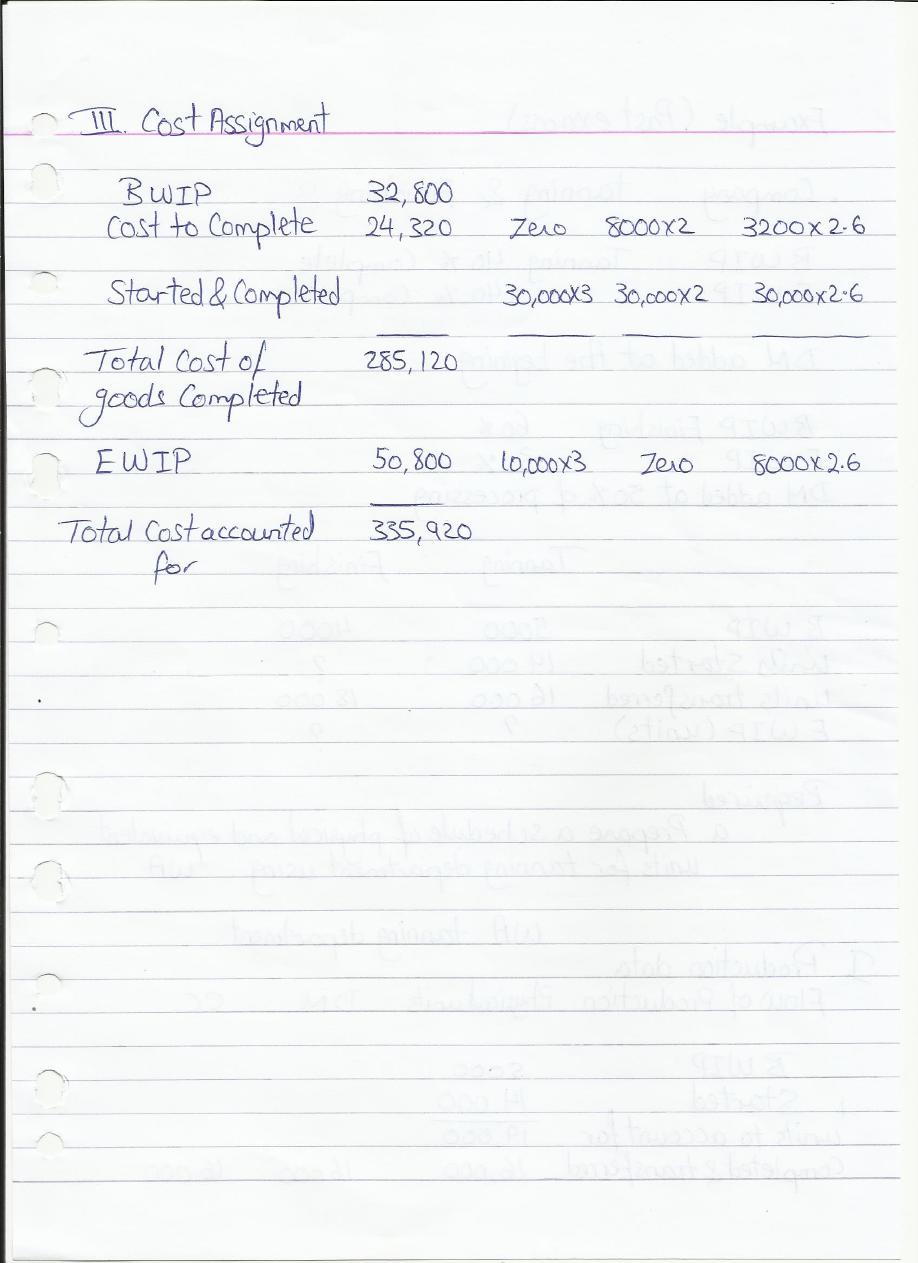 III. Cost Assignment
BWIP 32,800
Cost to Complete 24,320 Zero 8000x2 3200x2.6
Started & Completed 30,000x3 30,000x2 30,000x2.6
Total Cost of 285,120
goods Completed
EWIP 50,800 10,000x3 Zero 8000x2.6
Total Cost accounted 335,920
for